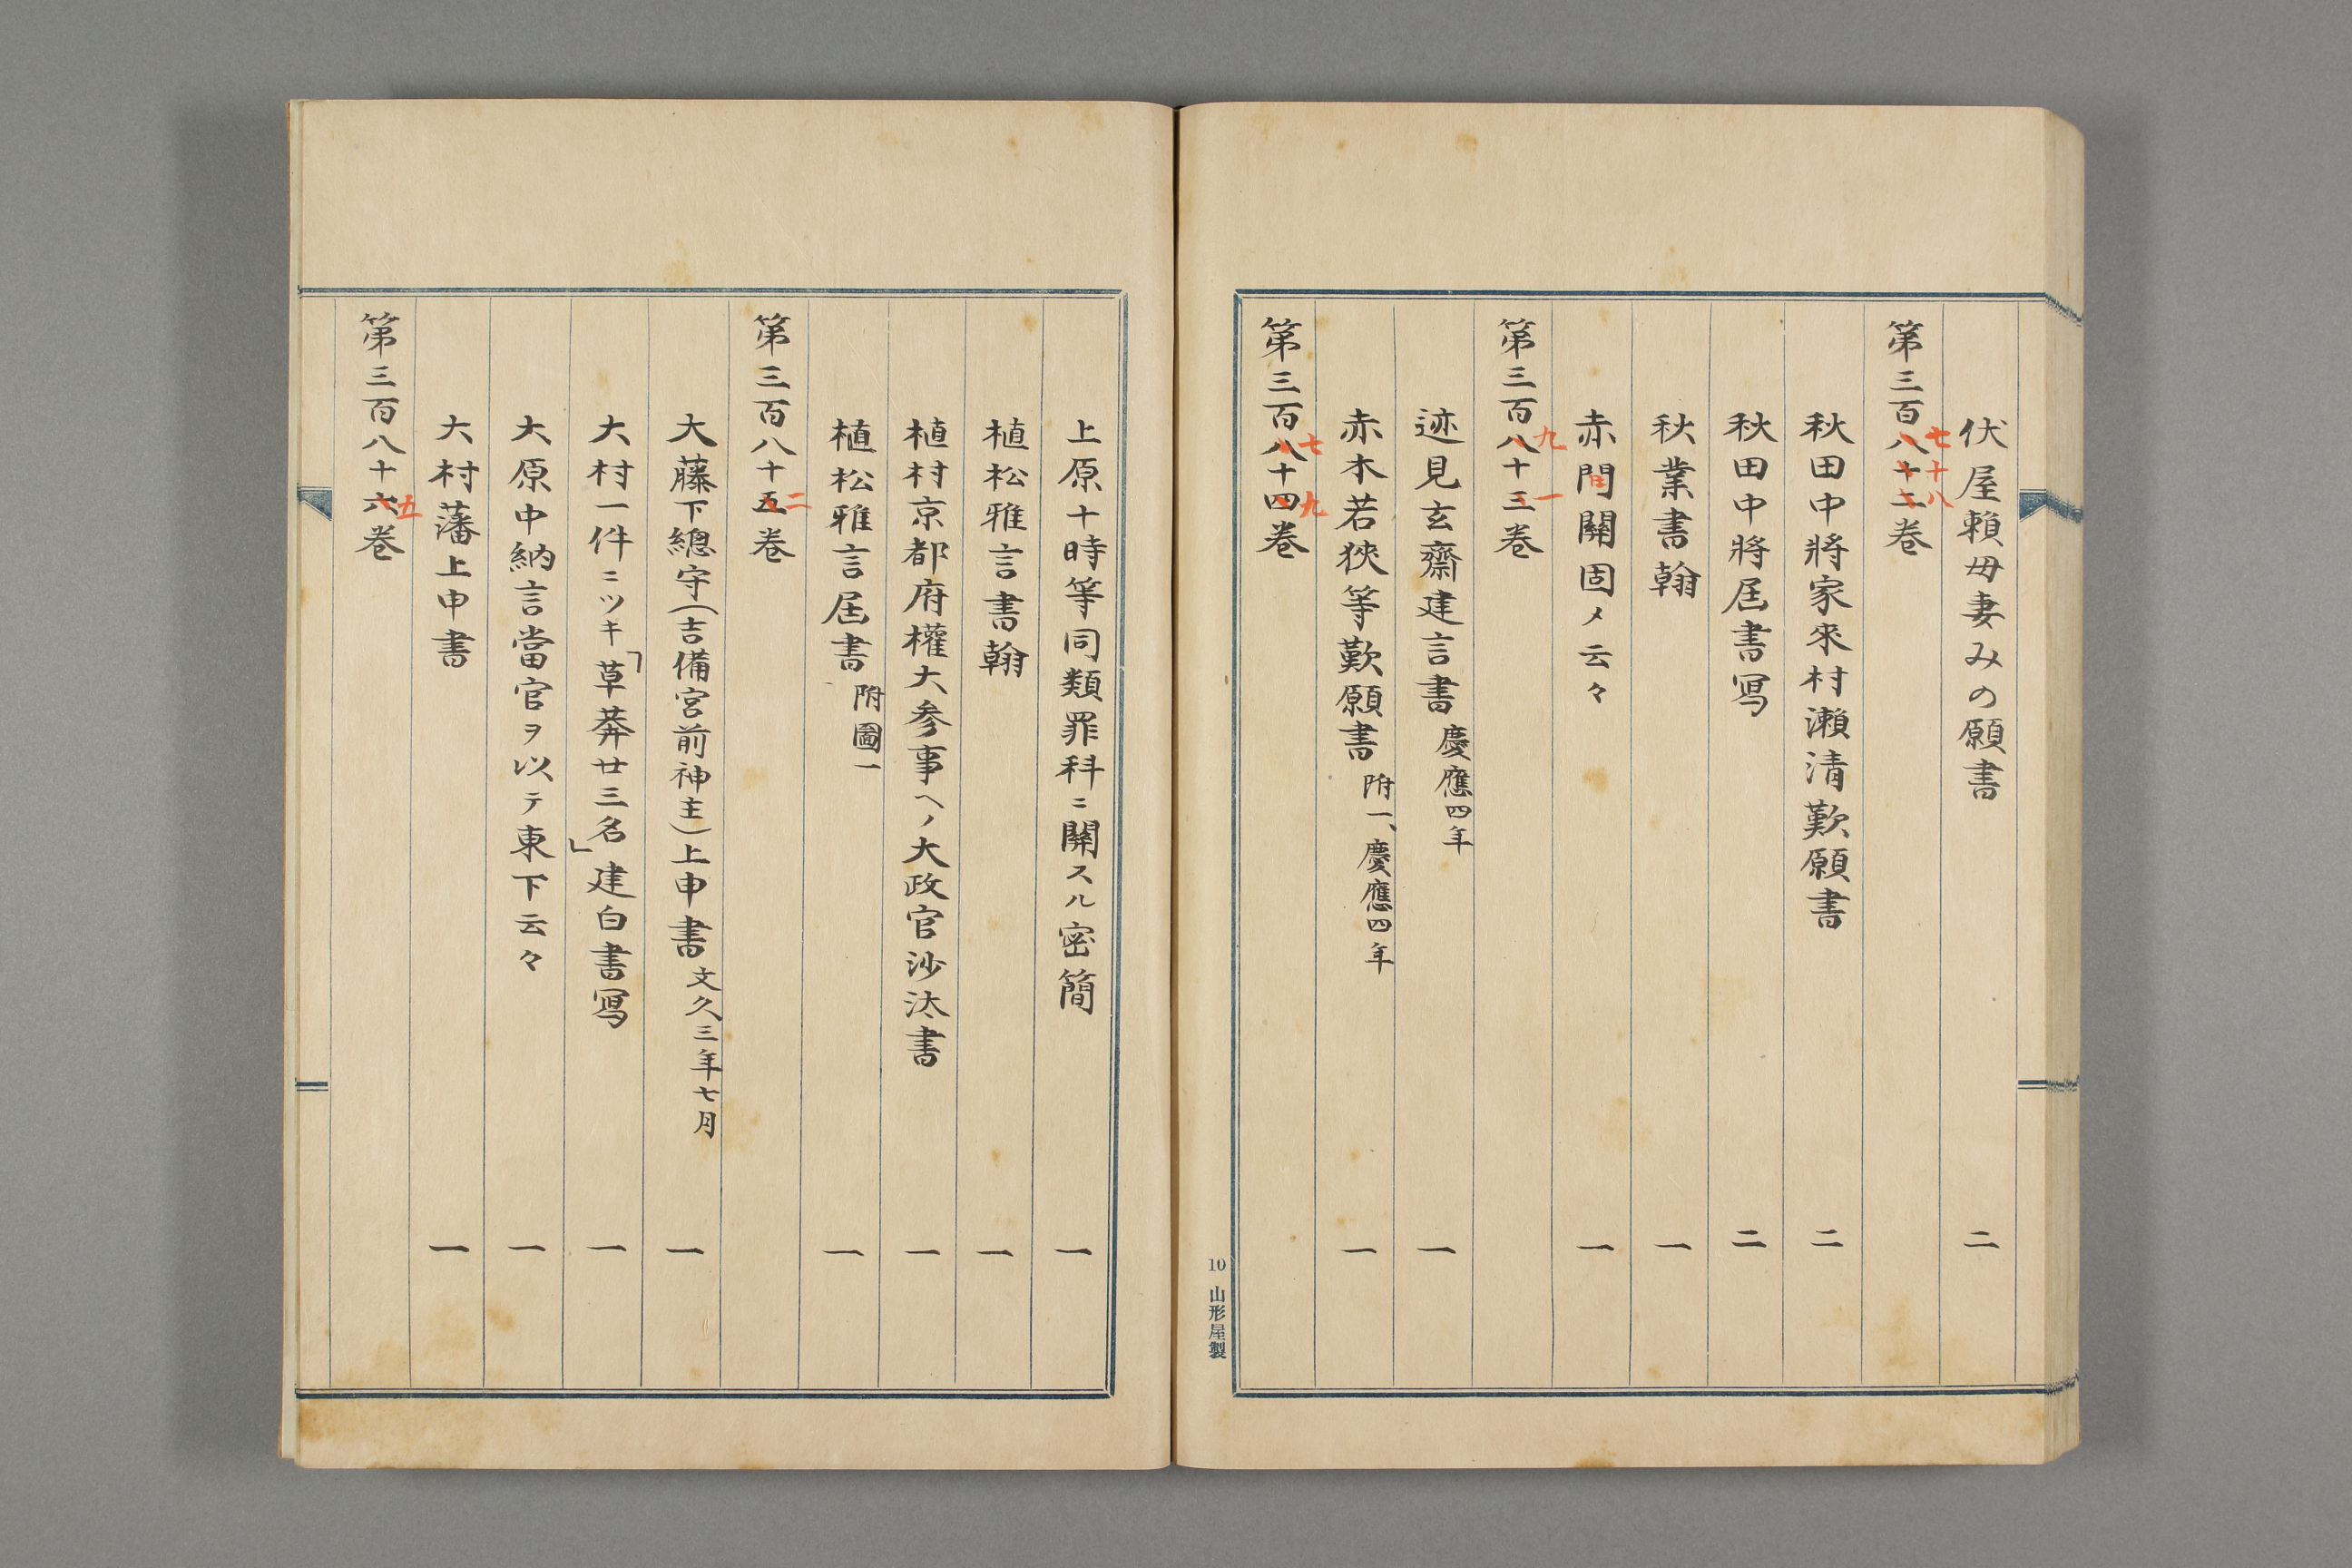 伏屋賴毋妻みの願書 二
第三百八十二巻
七十八
秋田中將家來村瀨清歎願書 二
秋田中將届書写 二
秋業書翰 一
赤間關固メ云々 一
第三百八十三巻
九一
迹見玄齋建言書 慶應四年 一
赤木若狹等歎願書 附一、慶應四年 一
第三百八十四巻
七九
10 山形屋製
上原十時等同類罪科ニ關スル密簡 一
植松雅言書翰 一
植村京都府權大参事ヘノ大政官沙汰書 一
植松雅言届書 附圖一 一
第三百八十五巻
二
大藤下總守(吉備宮前神主)上申書 文久三年七月 一
大村一件ニツキ「草莽廿三名」建白書写 一
大原中納言當官ヲ以テ東下云々 一
大村藩上申書 一
第三百八十六巻
五